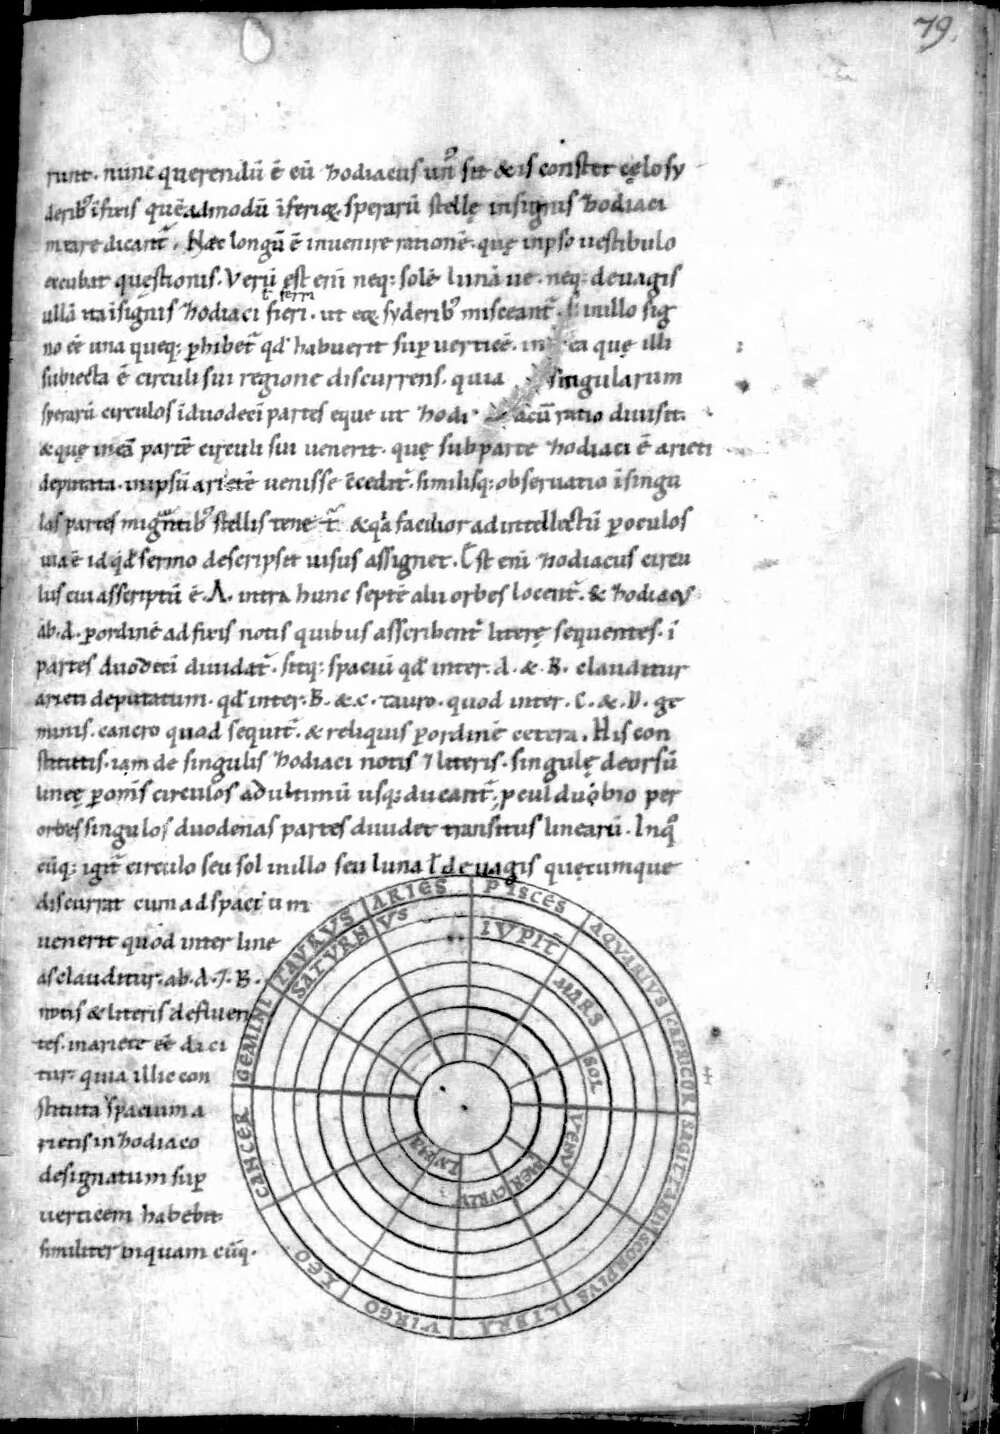 79.
runt. nunc querendū ē cū hodiacus un᷒ sit & is constet cęlo sy
derib᷒ īfixis quēadmodū īferiorꝝ sperarū stellę in signis hodiaci
meare dicant᷑. Hæc longū ē invenire rationē. quę in ipso uestibulo
excubat quęstionis. Verū est enī neq; solē lunā ue. neq; de uagis
t̄ ferri
ullā ita ī signis hodiaci fieri. ut eorꝝ syderib᷒ misceant᷑. s; in illo sig
no eē una queq; ꝑhibet᷑ qđ habuerit suꝑ verticē. in ea quę illi
subiecta ē circuli sui regione discurrens. quia singularum
sperarū circulos ī duodecī partes eque ut hodi acū ratio diuisit.
& quę in eā partē circuli sui uenerit. quę sub parte hodiaci ē arieti
deputata. in ipsū arietē uenisse c̄cedit᷑. similisq; obseruatio ī singu
las partes migrantib᷒ stellis tenet᷑. & qa facilior ad intellectū ꝑ oculos
uia ē id qđ sermo descripsit uisus assignet. Est enī hodiacus circu
lus cui asscriptū ē .A. intra hunc septē alii orbes locent᷑. & hodiacus
ab .A. ꝑ ordinē ad fixis notis quibus asscribent᷑ literę sequentes. ī
partes duodecī diuidat᷑. sitq; spaciū qđ inter .A. & .B. clauditur
arieti deputatum. qđ inter .B. & .c. tauro. quod inter .C. & .D. ge
minis. cancro quod sequit᷑. & reliquis ꝑ ordinē cetera. His con
stitutis. iam de singulis hodiaci notis ⁊ literis. singulę deorsū
lineę ꝑ om̄s circulos ad ultimū usq; ducant᷑. ꝓcul dubio per
orbes singulos duodenas partes diuidet transitus linearū. In qͦ
cūq; igit᷑ circulo seu sol in illo seu luna ł de uagis quęcumque
discurrat cum ad spacium
uenerit quod inter line
as clauditur. ab .A. ⁊ .B.
notis & literis defluen
tes. in ariete eē dici
tur. quia illic con
stituta spacium a
rietis in hodiaco
designatum suꝑ
uerticem habebit.
similiter inquam cūq.
ARIES
PISCES
AQVARIVS
CAPRICOR
SAGITTARIV
SCORPIVS
LIBRA
VIRGO
LEO
CANCER
GEMINI
TAVRVS
SATVRNVS
IVPIT̄
MARS
SOL
VENV
MERCVRIV
LVNA